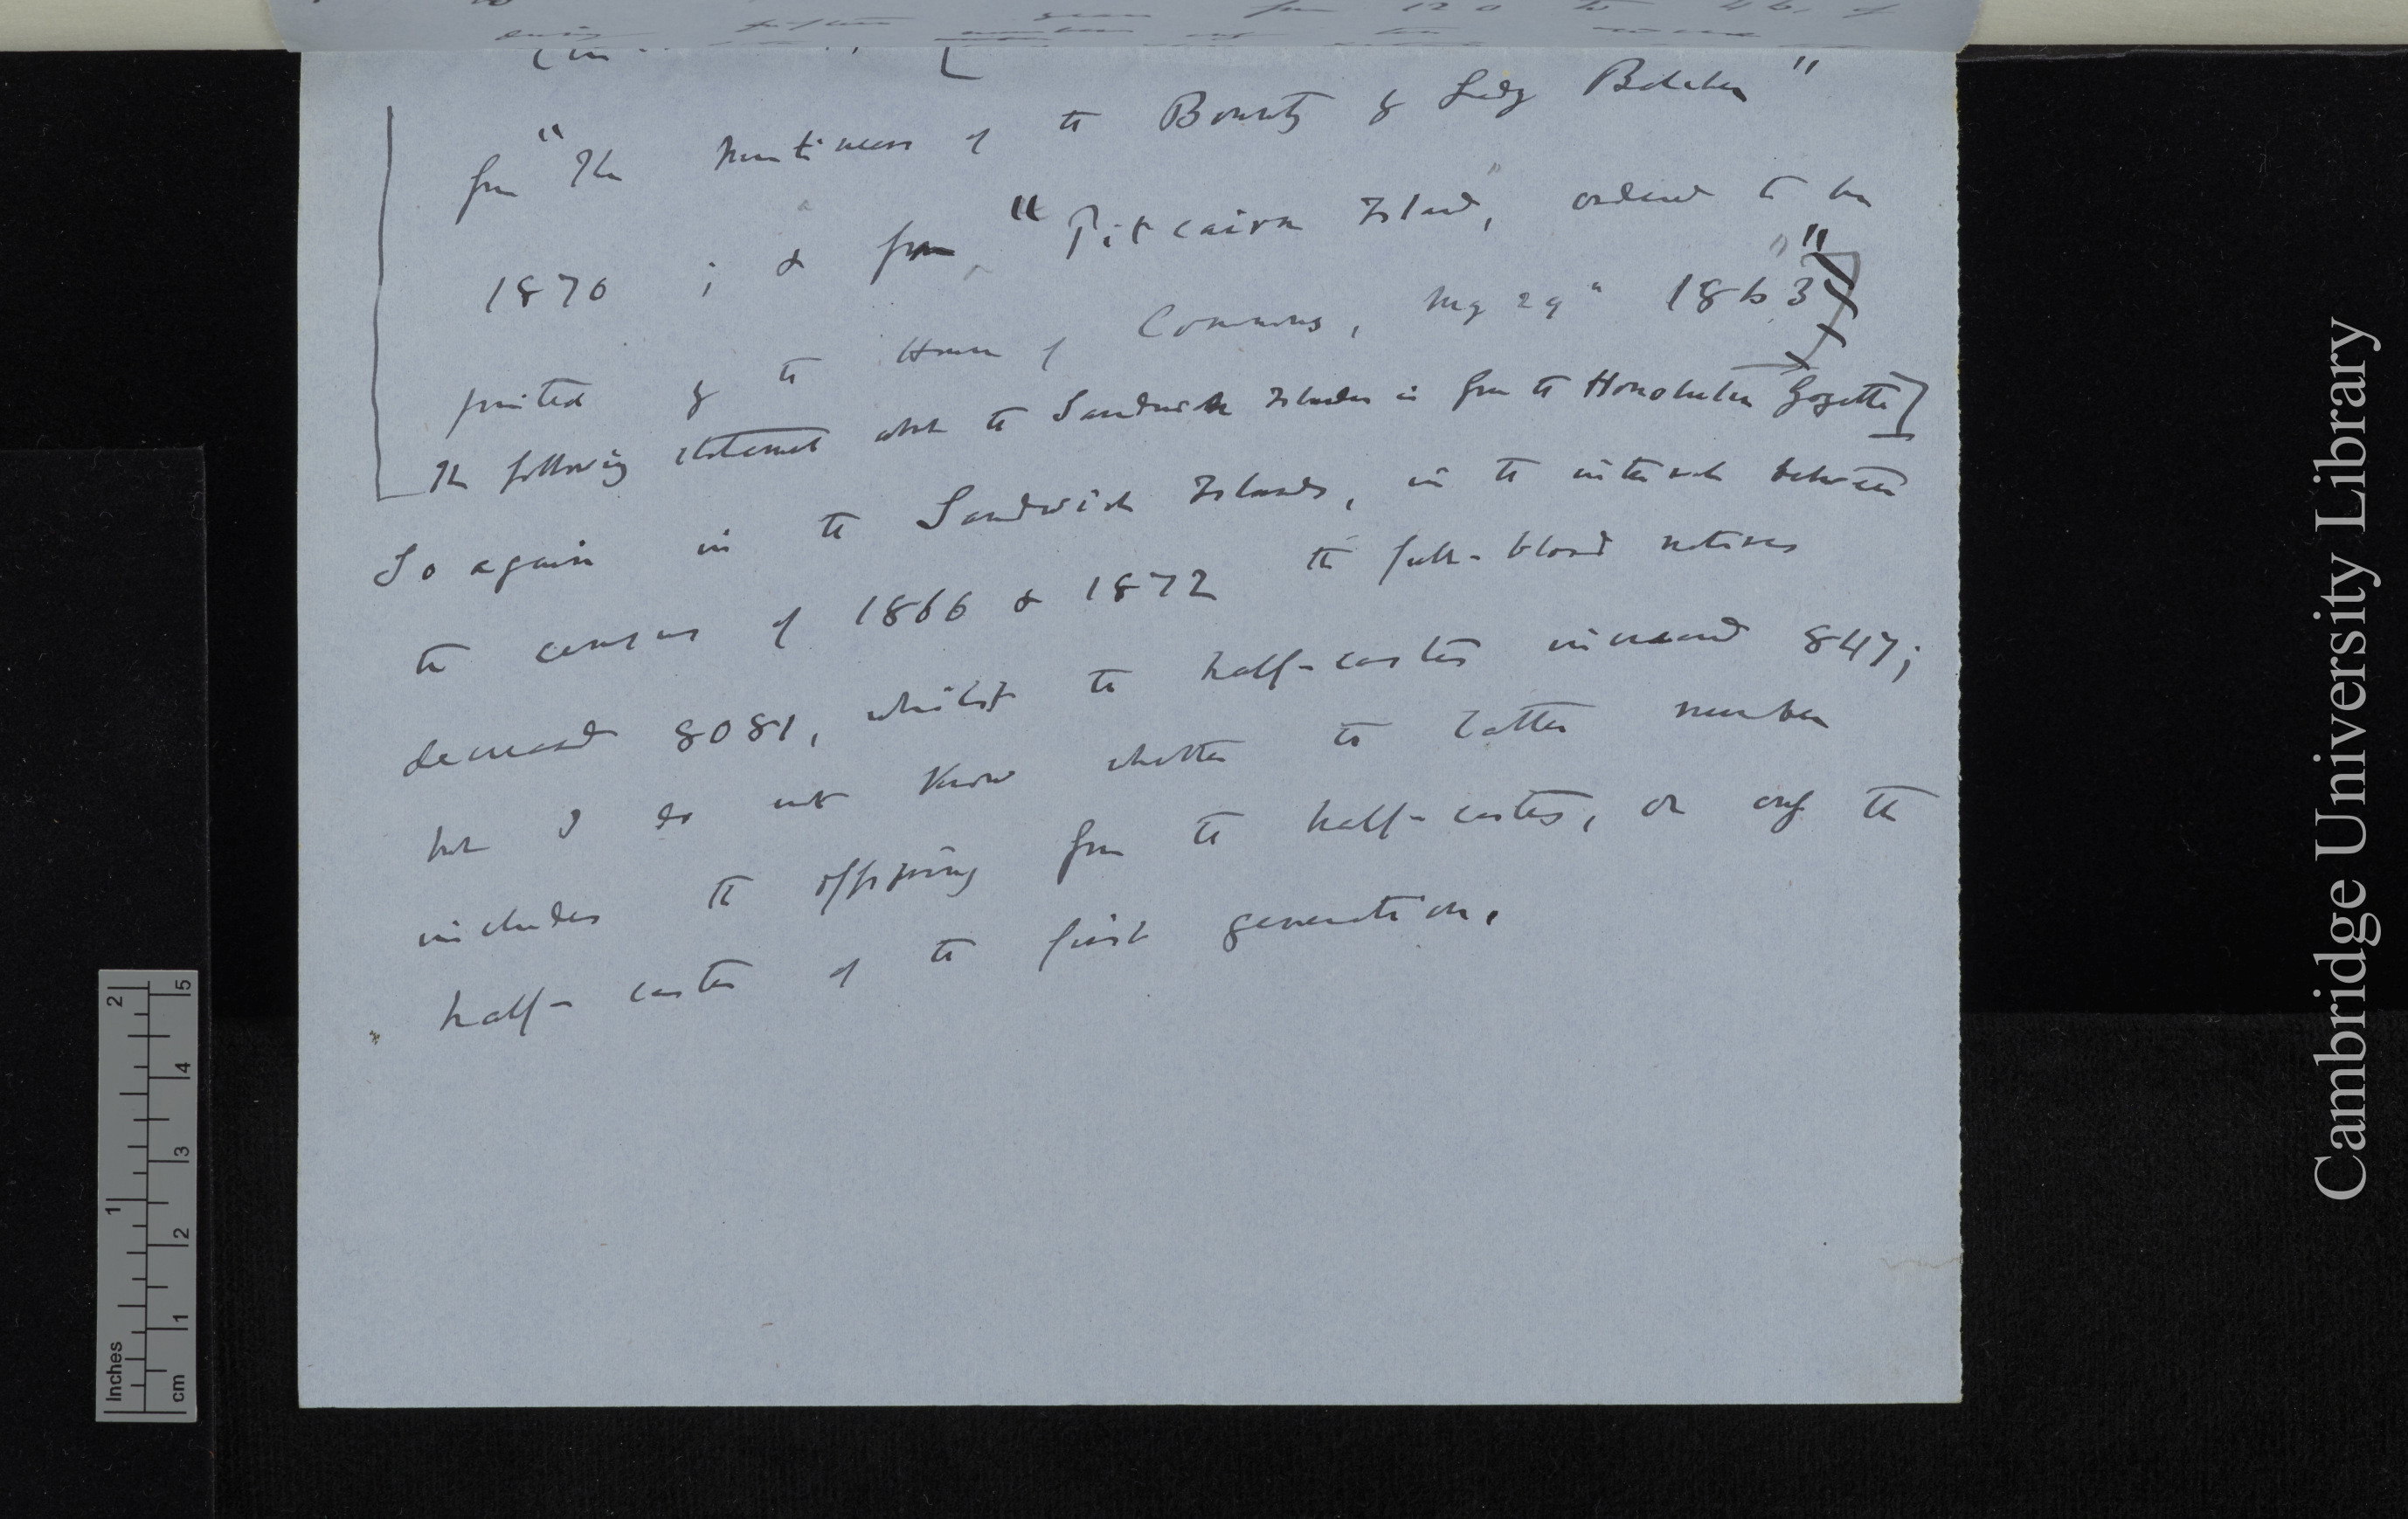 from "The Mutineers of the Bounty by Lady Belcher"
1870 ; & from "Pitcairn Island", ordered to be
printed by the House of Commons, May 29" 1863"
The following statement about the Sandwich Islanders is from the Honolulu Gazette]
So again in the Sandwich Islands, in the interval between
the census of 1866 & 1872 the full-blood natives
decreased 8081, whilst the half-castes increased 847;
but I do not know whether the latter number
includes the offspring from the half-castes, or only the
half-castes of the first generation.
Cambridge University Library
Inches
1
2
cm
1
2
3
4
5